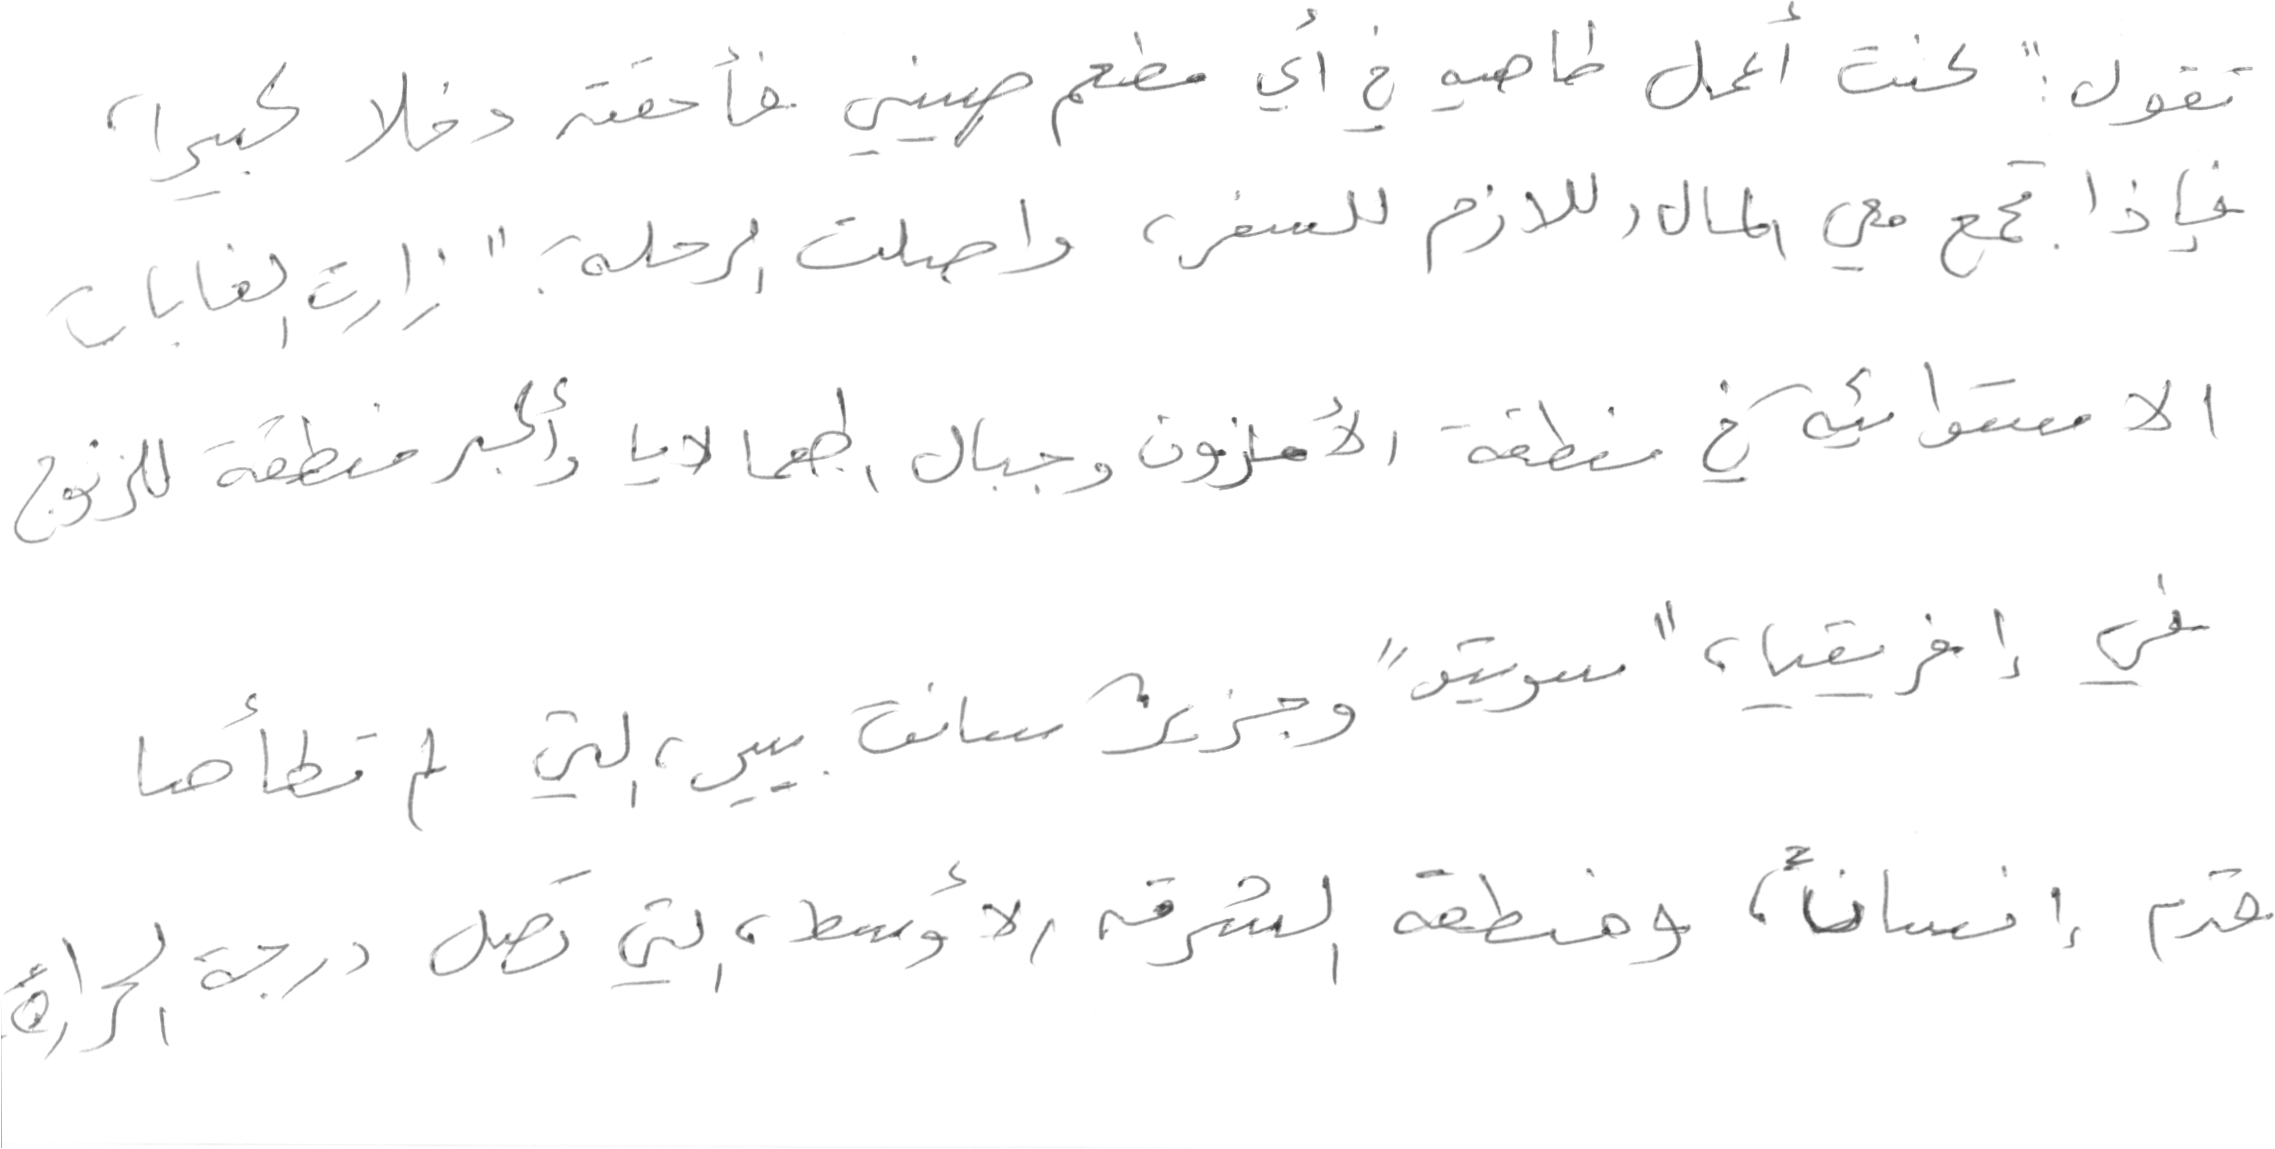 تقول: "كنت أعمل طاهيه في أي مطعم صيني فأحقق دخلا كبيرا،
فإذا تجمع معي المال اللازم للسفر، واصلت الرحلة." زارت الغابات
الاستوائية في منطقة الأمازون وجبال الهمالايا وأكبر منطقة للزنوج
في إفريقيا، "سويتو" وجزيرة سانت بيير، التي لم تطأها
قدم إنسان، ومنطقة الشرق الأوسط، التي تصل درجة الحرارة